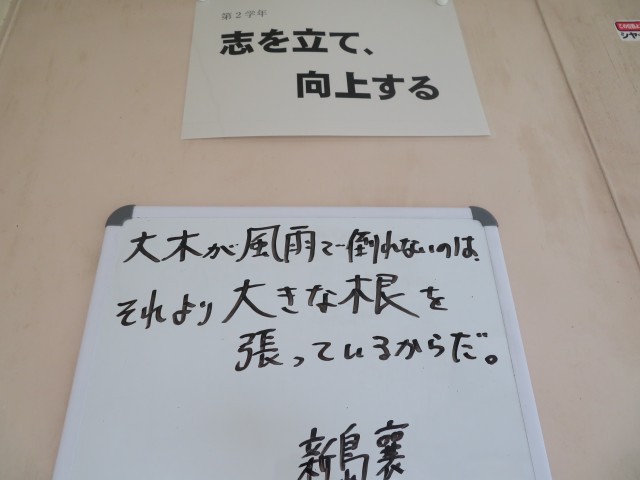 第2学年
志を立て、
向上する
大木が風雨で倒れないのは、
それより大きな根を
張っているからだ。
新島襄